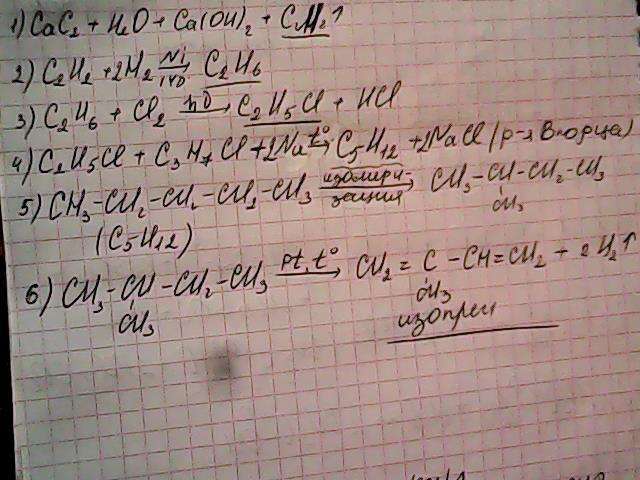 1) CaC2 + H2O + Ca(OH)2 + C2H2↑
2) C2H2 + 2H2 Ni 140 → C2H6
3) C2H6 + Cl2 hν → C2H5Cl + HCl
4) C2H5Cl + C3H7Cl + 2Na t° → C5H12 + 2NaCl (р-я Вюрца)
5) CH3-CH2-CH2-CH2-CH3 изомери-зация → CH3-CH-CH2-CH3
CH3
(C5H12)
6) CH3-CH-CH2-CH3 Pt, t° → CH2=C-CH=CH2 + 2H2↑
CH3 CH3
изопрен